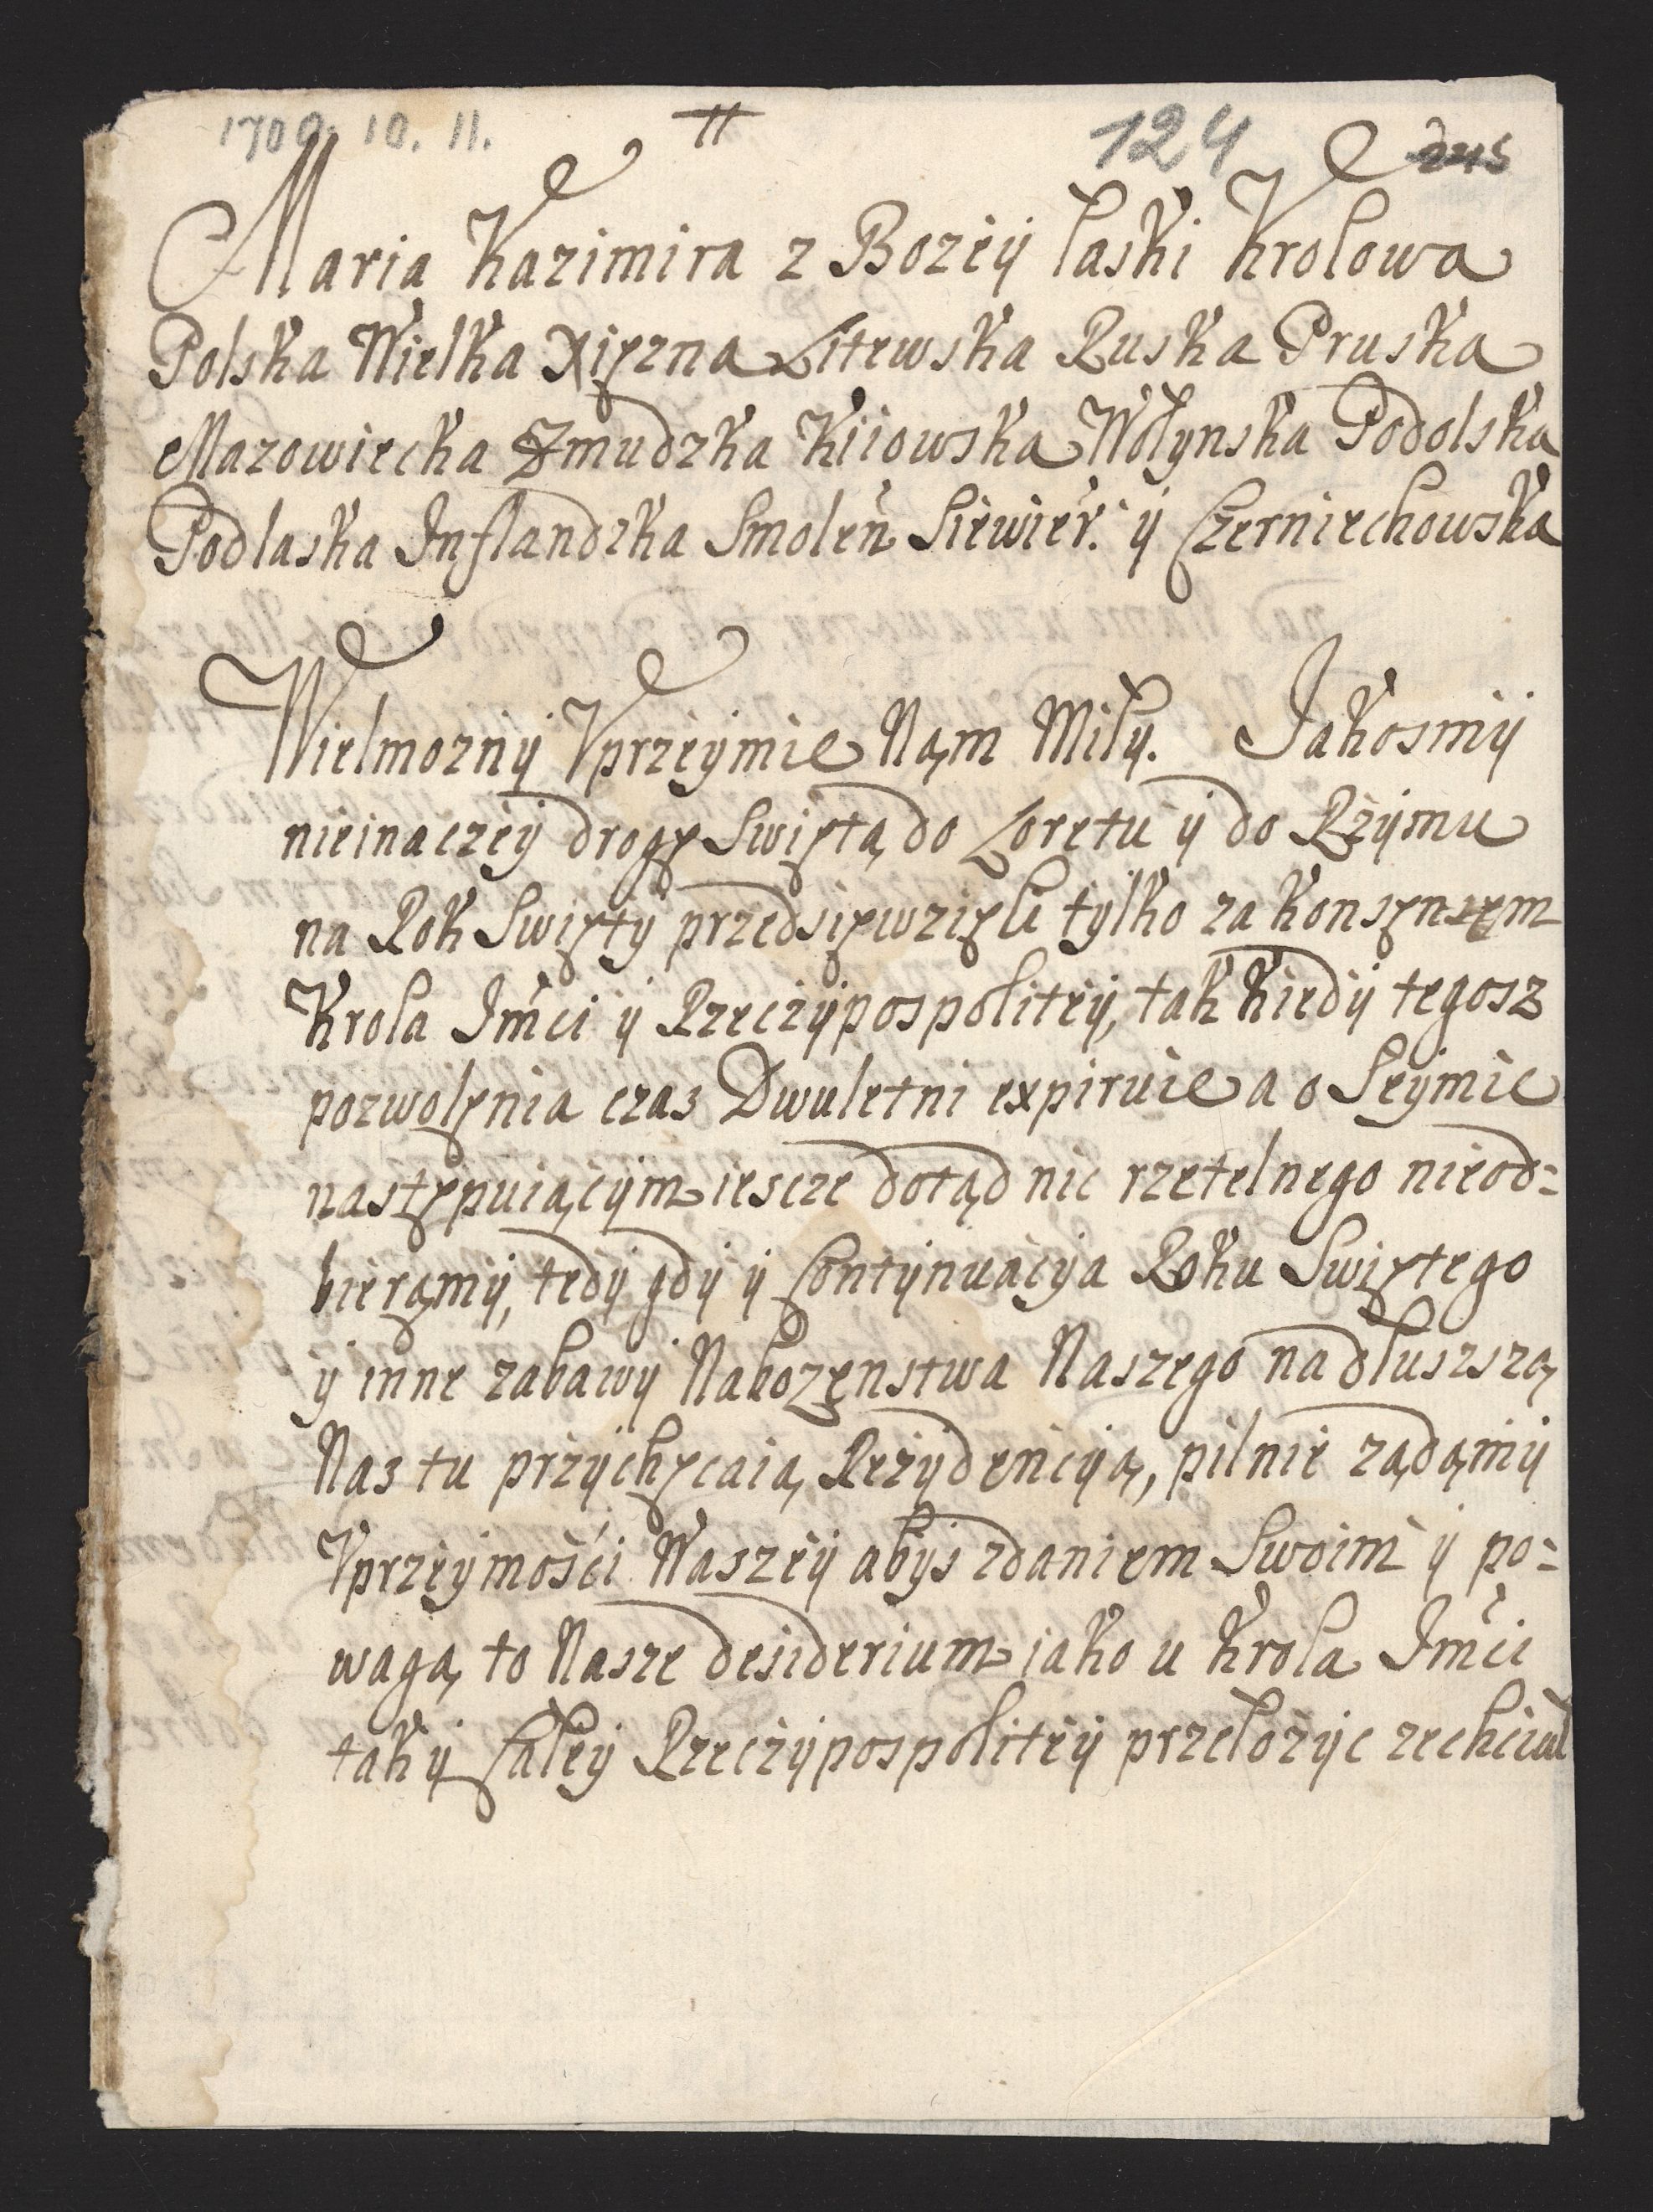 1700. 10. 11.
11
124
Maria Kazimira z Bozey Łaski Krolowa
Polska Wielka Xięzna Litewska Ruska Pruska
Mazowiecka Zmudzka Kiiowska Wołynska Podolska
Podlaska Inflandzka Smoleń Siewier: y Czerniechowska
Wielmozny Vprzeymie Nąm Miły. Jakosmy
nieinaczey drogę Swiętą do Loretu y do Rzymu
na Rok Swięty przedsięwzięli tylko za konsęnsęm
Krola Jmći y Rzeczypospolitey, tak kiedy tegosz
pozwolęnia czas Dwuletni expiruie a o Seymie
następuiącym iescze dotąd nic rzetelnego nieod=
bierąmy, tedy gdy y Contynuacya Roku Swiętego
y inne zabawy Nabozęnstwa Naszego na dłuszszą
Nas tu przychęcaią Rezydencyą, pilnie ządąmy
Vprzeymośći Waszey abys zdaniem Swoim y po=
wagą to Nasze desiderium iako u Krola Jmći
tak y Całey Rzeczypospolitey przełozyc zechciał